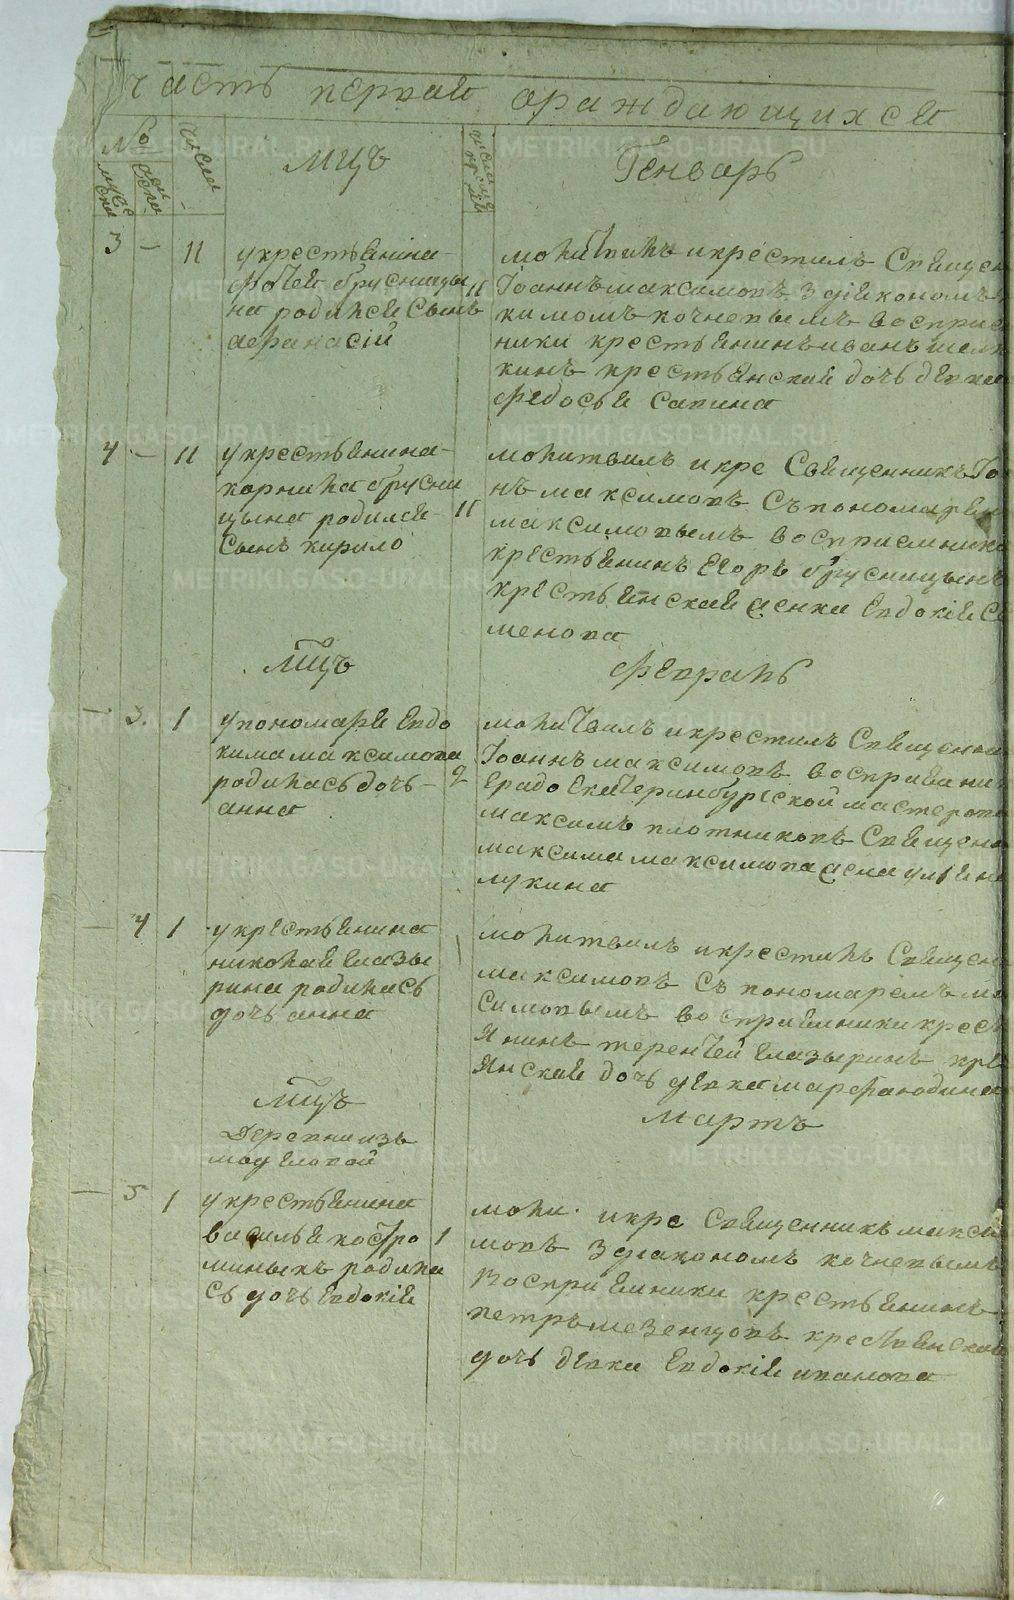 часть первая ораждающихся
№
мужеска
женска
числа
мцъ
числа крещения
Генварь
3 — 11 укрестьянина
фотея брусницы
на родился сынъ
афанасiй
11
молитвилъ икрестилъ Священ
Iоаннъ максимовъ здiякономъ
кимомъ кочневымъ восприе
ники крестьянинъ иванъ шела
кинъ крестьянская дочь девка
федосья савина
4 — 11 укрестьянина
корнила брусни
цына родился
Сынъ кирило
11
молитвилъ икре Священникъ Iоа
нъ максимовъ Съпономарем
максимовымъ восприемники
крестьянинъ Егоръ брусницынъ
крестьянская женка Евдокiя Се
менова
мцъ
февраль
— 3. 1 упономаря Евдо
кима максимова
родилась дочь
анна
2
молитвилъ икрестилъ Священни
Iоаннъ максимовъ восприяни
Града Екатеринбурской мастерово
максимъ плотниковъ Священ
максима максимова жена ульяна
лукина
— 4 1 укрестьянина
николая глазы
рина родилась
дочь анна
молитвилъ икрестилъ Священ
максимовъ Съ пономаремъ ма
симовымъ восприемники крест
янинъ терентей глазыринъ кре
янская дочь девка марфа юдина
мцъ
мартъ
Деревни изъ
модысловой
— 5 1 укрестьянина
василья костро
миныхъ родила
сь дочь Евдокiя
1
моли. икре Священникъ макси
мовъ здiакономъ кочневымъ
Восприемники крестьянинъ
петръ мезенцовъ крестьянская
дочь девка Евдокiя иванова
METRIKI.GASO-URAL.RU